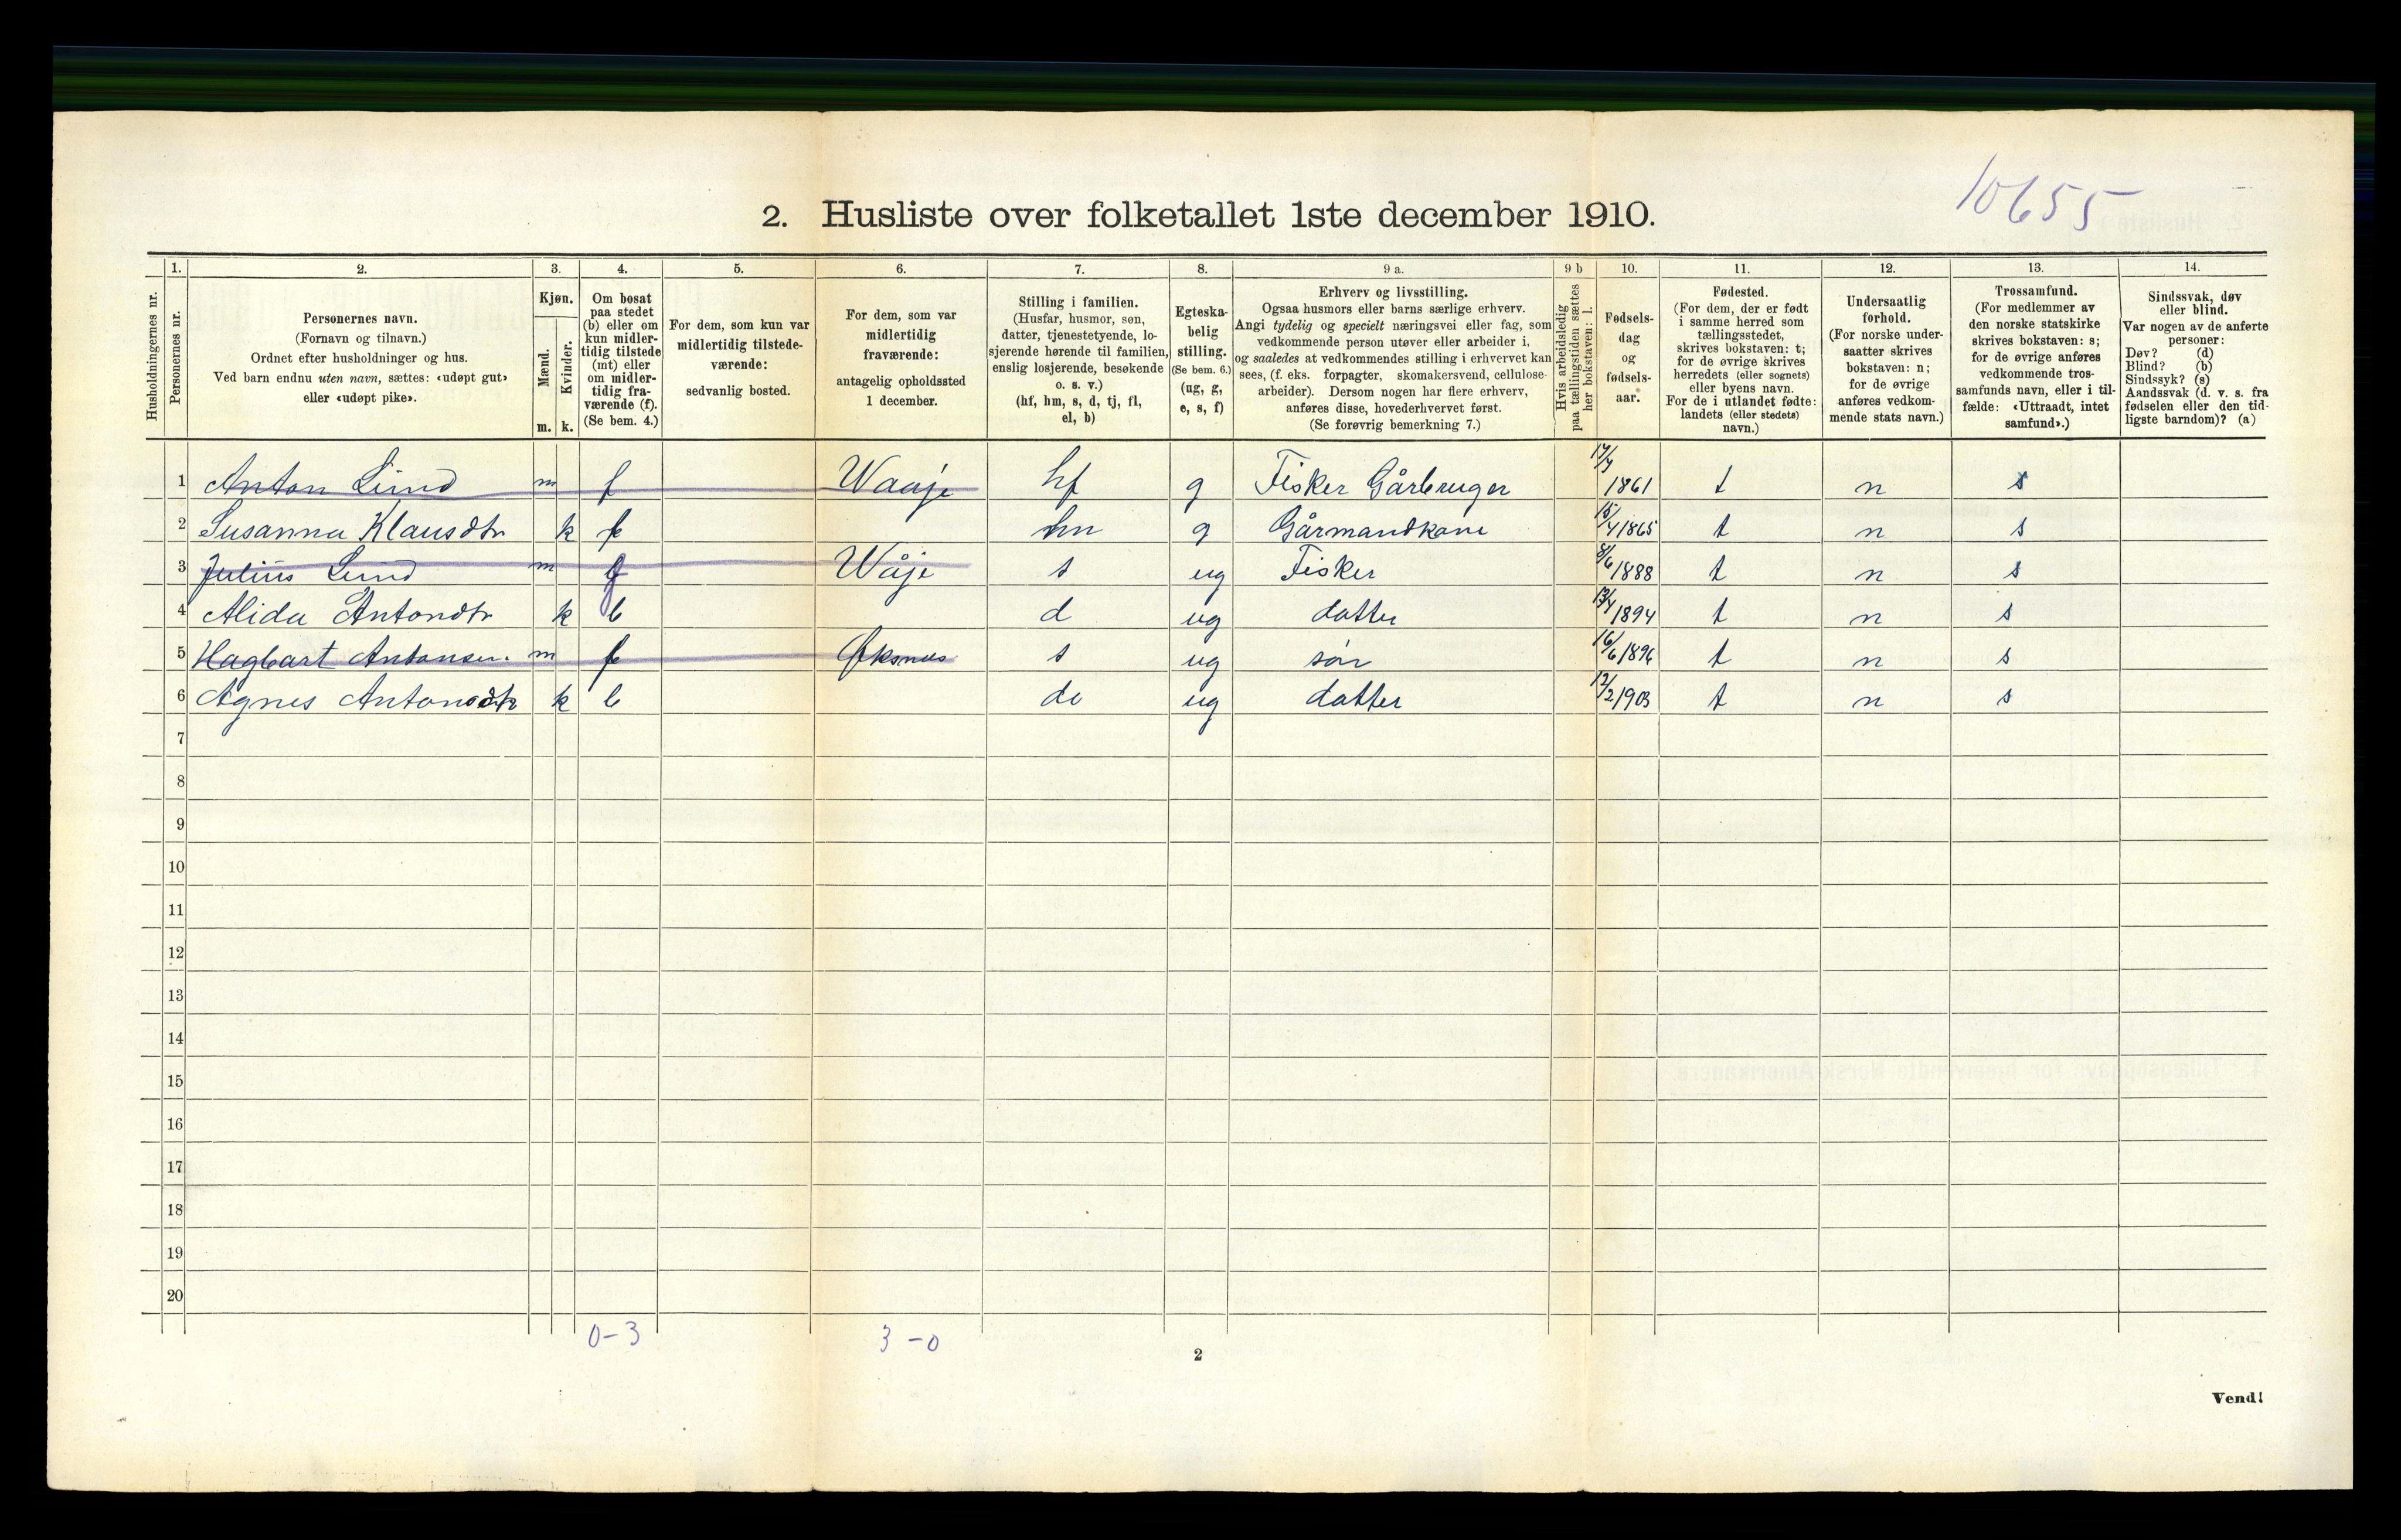 10655
2. Husliste over folketallet 1ste december 1910.
1. 2. 3. 4. 5. 6. 7. 8. 9 a. 9 b 10. 11. 12. 13. 14.
Husholdningernes nr.
Personernes nr.
Personernes navn.
(Fornavn og tilnavn.)
Ordnet efter husholdninger og hus.
Ved barn endnu uten navn, sættes: «udøpt gut»
eller «udøpt pike».
Kjøn.
Mænd.
Kvinder.
m. k.
Om bosat
paa stedet
(b) eller om
kun midler-
tidig tilstede
(mt) eller
om midler-
tidig fra-
værende (f).
(Se bem. 4.)
For dem, som kun var
midlertidig tilstede-
værende:
sedvanlig bosted.
For dem, som var
midlertidig
fraværende:
antagelig opholdssted
1 december.
Stilling i familien.
(Husfar, husmor, søn,
datter, tjenestetyende, lo-
sjerende hørende til familien,
enslig losjerende, besøkende
o. s. v.)
(hf, hm, s, d, tj, fl,
el, b)
Egteska-
belig
stilling.
(Se bem. 6.)
(ug, g,
e, s, f)
Erhverv og livsstilling.
Ogsaa husmors eller barns særlige erhverv.
Angi tydelig og specielt næringsvei eller fag, som
vedkommende person utøver eller arbeider i,
og saaledes at vedkommendes stilling i erhvervet kan
sees, (f. eks. forpagter, skomakersvend, cellulose-
arbeider). Dersom nogen har flere erhverv,
anføres disse, hovederhvervet først.
(Se forøvrig bemerkning 7.)
Hvis arbeidsledig
paa tællingstiden sættes
her bokstaven: l.
Fødsels-
dag
og
fødsels-
aar.
Fødested.
(For dem, der er født
i samme herred som
tællingsstedet,
skrives bokstaven: t;
for de øvrige skrives
herredets (eller sognets)
eller byens navn.
For de i utlandet fødte:
landets (eller stedets)
navn.)
Undersaatlig
forhold.
(For norske under-
saatter skrives
bokstaven: n;
for de øvrige
anføres vedkom-
mende stats navn.)
Trossamfund.
(For medlemmer av
den norske statskirke
skrives bokstaven: s;
for de øvrige anføres
vedkommende tros-
samfunds navn, eller i til-
fælde: «Uttraadt, intet
samfund».)
Sindssvak, døv
eller blind.
Var nogen av de anførte
personer:
Døv? (d)
Blind? (b)
Sindssyk? (s)
Aandssvak (d. v. s. fra
fødselen eller den tid-
ligste barndom)? (a)
1 Anton Lund m f Waaje hf g Fisker Gårbruger 1861 t n s
2 Susanna Klausdtr k hm g Gårmandkone 15/4 1865 t n s
3 Julius Lund m f Wåje s ug Fisker 8/6 1888 t n s
4 Alida Antondtr k b d ug datter 1894 t n s
5 Hagbart Antonsen. m f Øksnes s ug søn 16/6 1896 t n s
6 Agnes Antonsdtr k b d ug datter 12/2 1903 t n s
7
8
9
10
11
12
13
14
15
16
17
18
19
20
0-3 3-0
2
Vend!